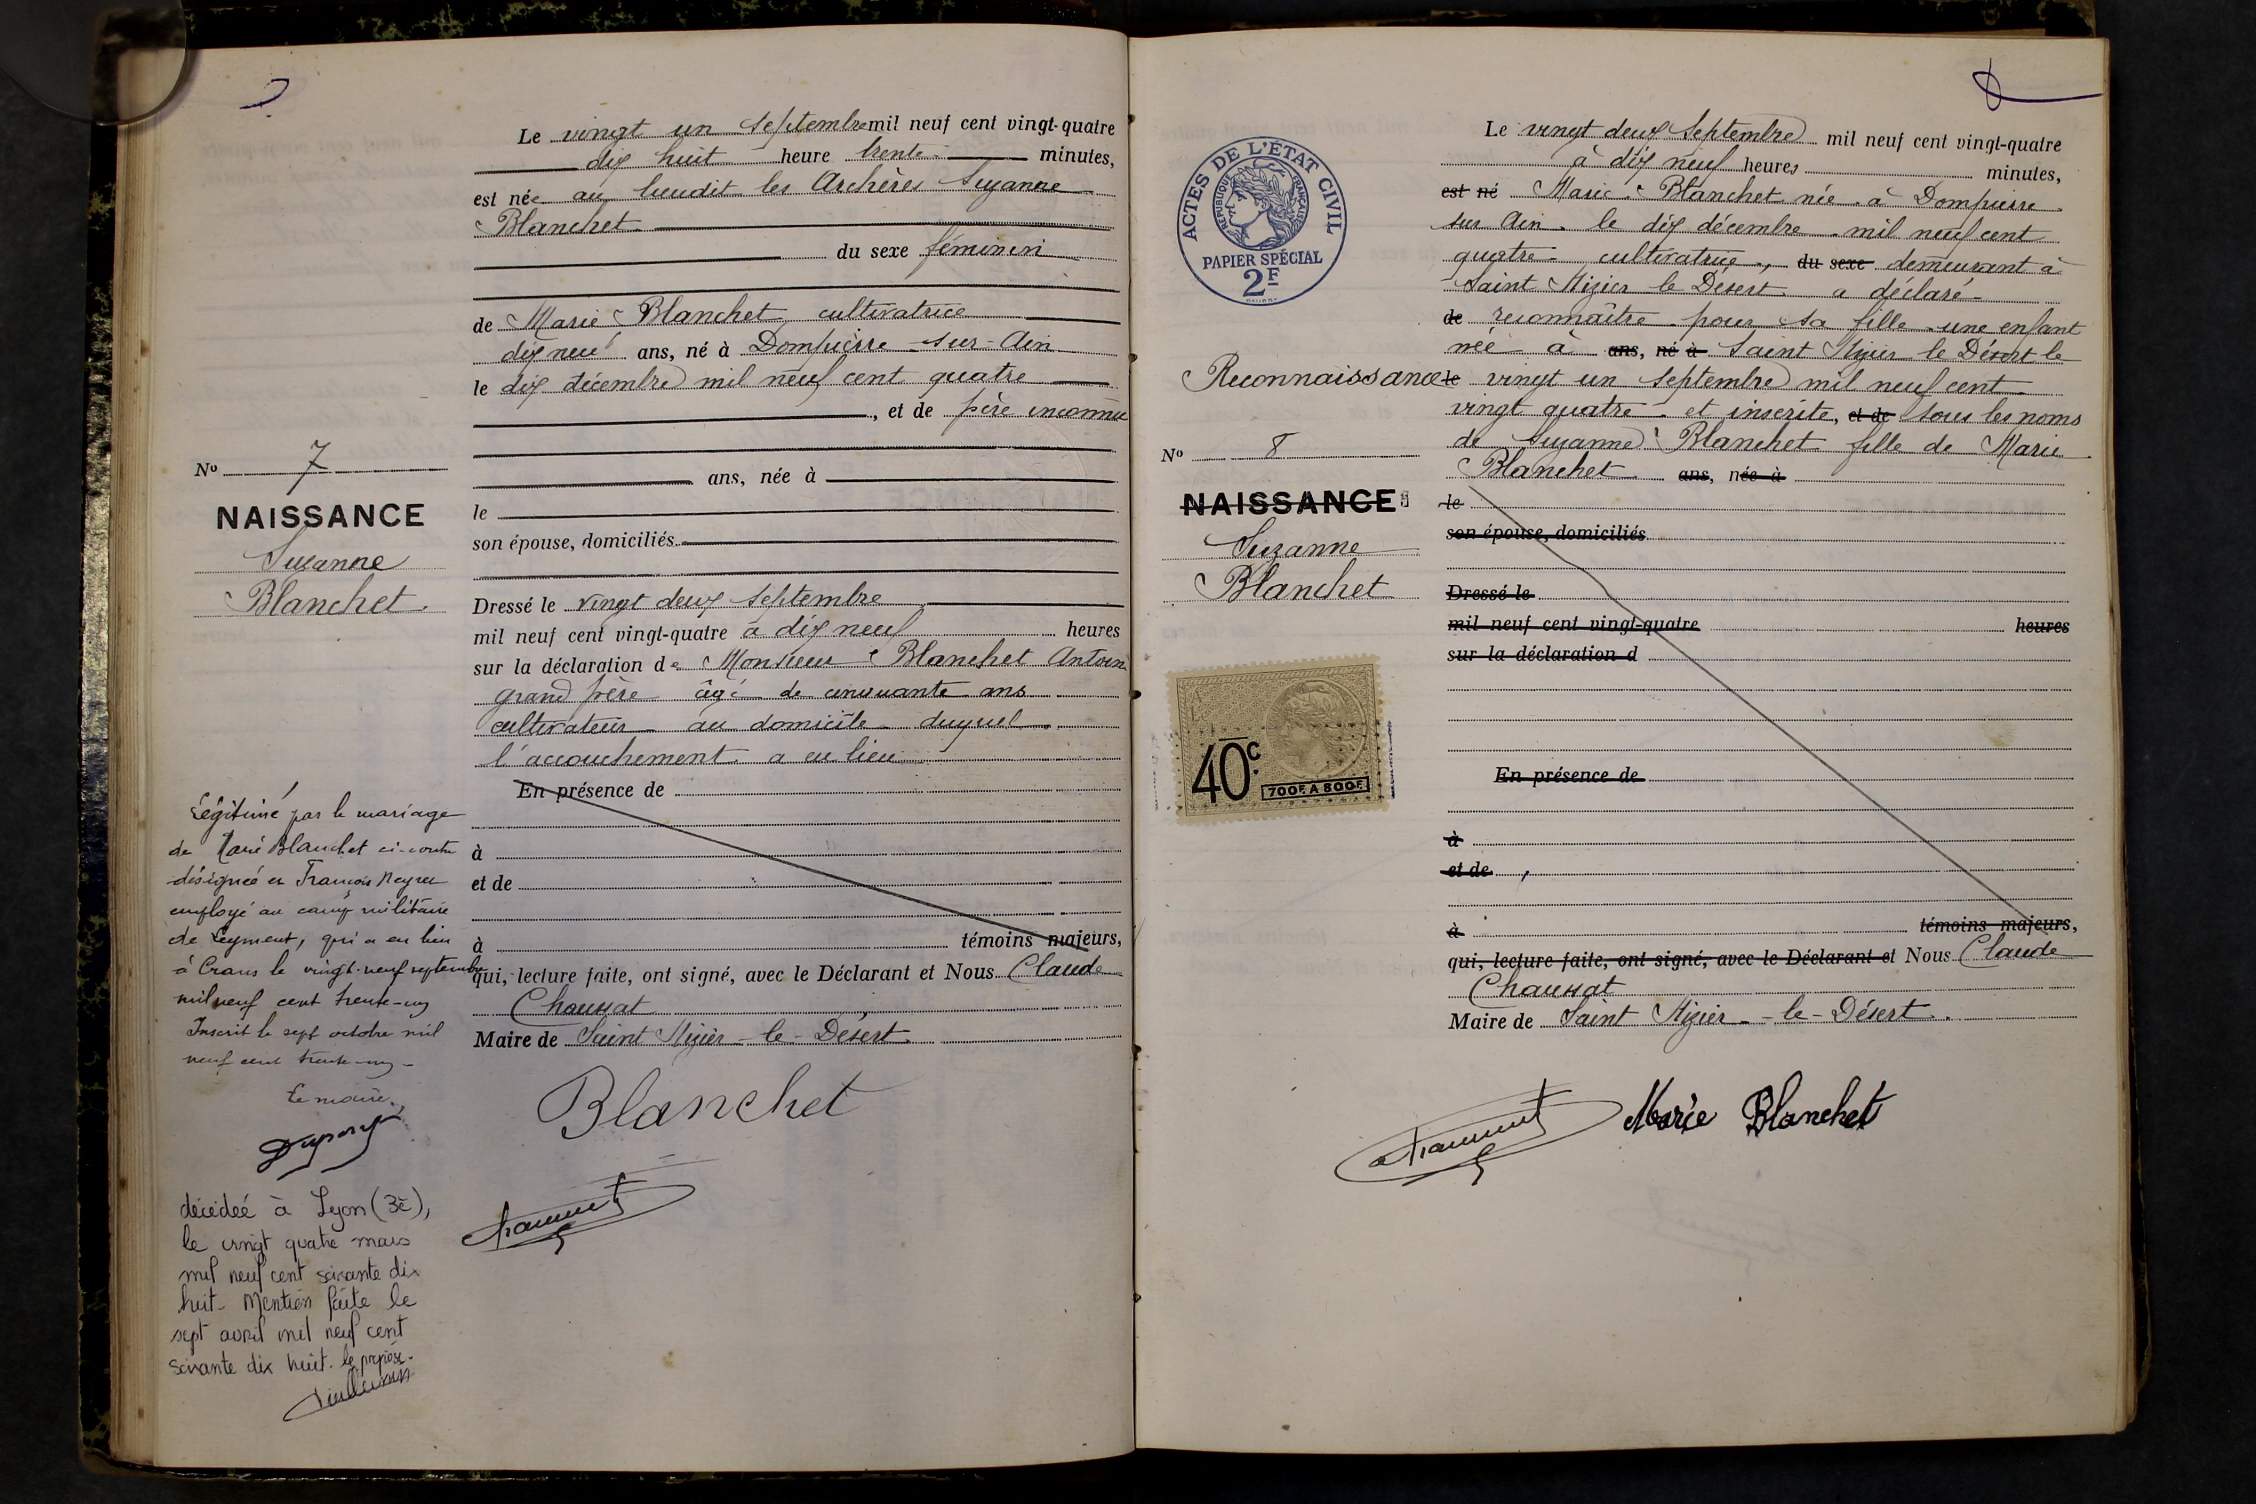 Le vingt un septembre mil neuf cent vingt-quatre
dix huit heure trente minutes,
est née au lieudit les Archères Suzanne
Blanchet
du sexe féminin
de Marie Blanchet cultivatrice
dix neuf ans, né à Dompierre-sur-Ain
le dix décembre mil neuf cent quatre
, et de père inconnu
ans, née à
le
son épouse, domiciliés
Dressé le vingt deux septembre
mil neuf cent vingt-quatre à dix neuf heures
sur la déclaration de Monsieur Blanchet Antoine
grand père âgé de cinquante ans
cultivateur au domicile duquel
l'accouchement a eu lieu
En présence de
à
et de
à témoins majeurs,
qui, lecture faite, ont signé, avec le Déclarant et Nous Claude
Chaussat
Maire de Saint Nizier-le-Désert
Blanchet
No 7
NAISSANCE
Suzanne
Blanchet
Légitimé par le mariage
de Marie Blanchet ci-contre
désignée et François Neyret
employé au camp militaire
de Leyment, qui a eu lieu
à Crans le vingt-neuf septembre
mil neuf cent trente-un
Inscrit le sept octobre mil
neuf cent trente-un
Le maire,
décédée à Lyon (3è),
le vingt quatre mars
mil neuf cent soixante dix
huit. Mention faite le
sept avril mil neuf cent
soixante dix huit. le préposé.
ACTES DE L'ETAT CIVIL
REPUBLIQUE FRANÇAISE
PAPIER SPÉCIAL
2F
Reconnaissance
No 8
NAISSANCE
Suzanne
Blanchet
40c.
700F. A 800F.
Le vingt deux septembre mil neuf cent vingt-quatre
à dix neuf heures minutes,
est né Marie Blanchet née à Dompierre
sur Ain le dix décembre mil neuf cent
quatre cultivatrice, du sexe demeurant à
Saint Nizier le Désert a déclaré
de reconnaître pour sa fille une enfant
née à ans, né à Saint Nizier le Désert le
le vingt un septembre mil neuf cent
vingt quatre et inscrite, et de sous les noms
de Suzanne Blanchet fille de Marie
Blanchet ans, née à
le
son épouse, domiciliés
Dressé le
mil neuf cent vingt-quatre heures
sur la déclaration d
En présence de
à
et de ,
à témoins majeurs,
qui, lecture faite, ont signé, avec le Déclarant et Nous Claude
Chaussat
Maire de Saint Nizier-le-Désert.
Marie Blanchet